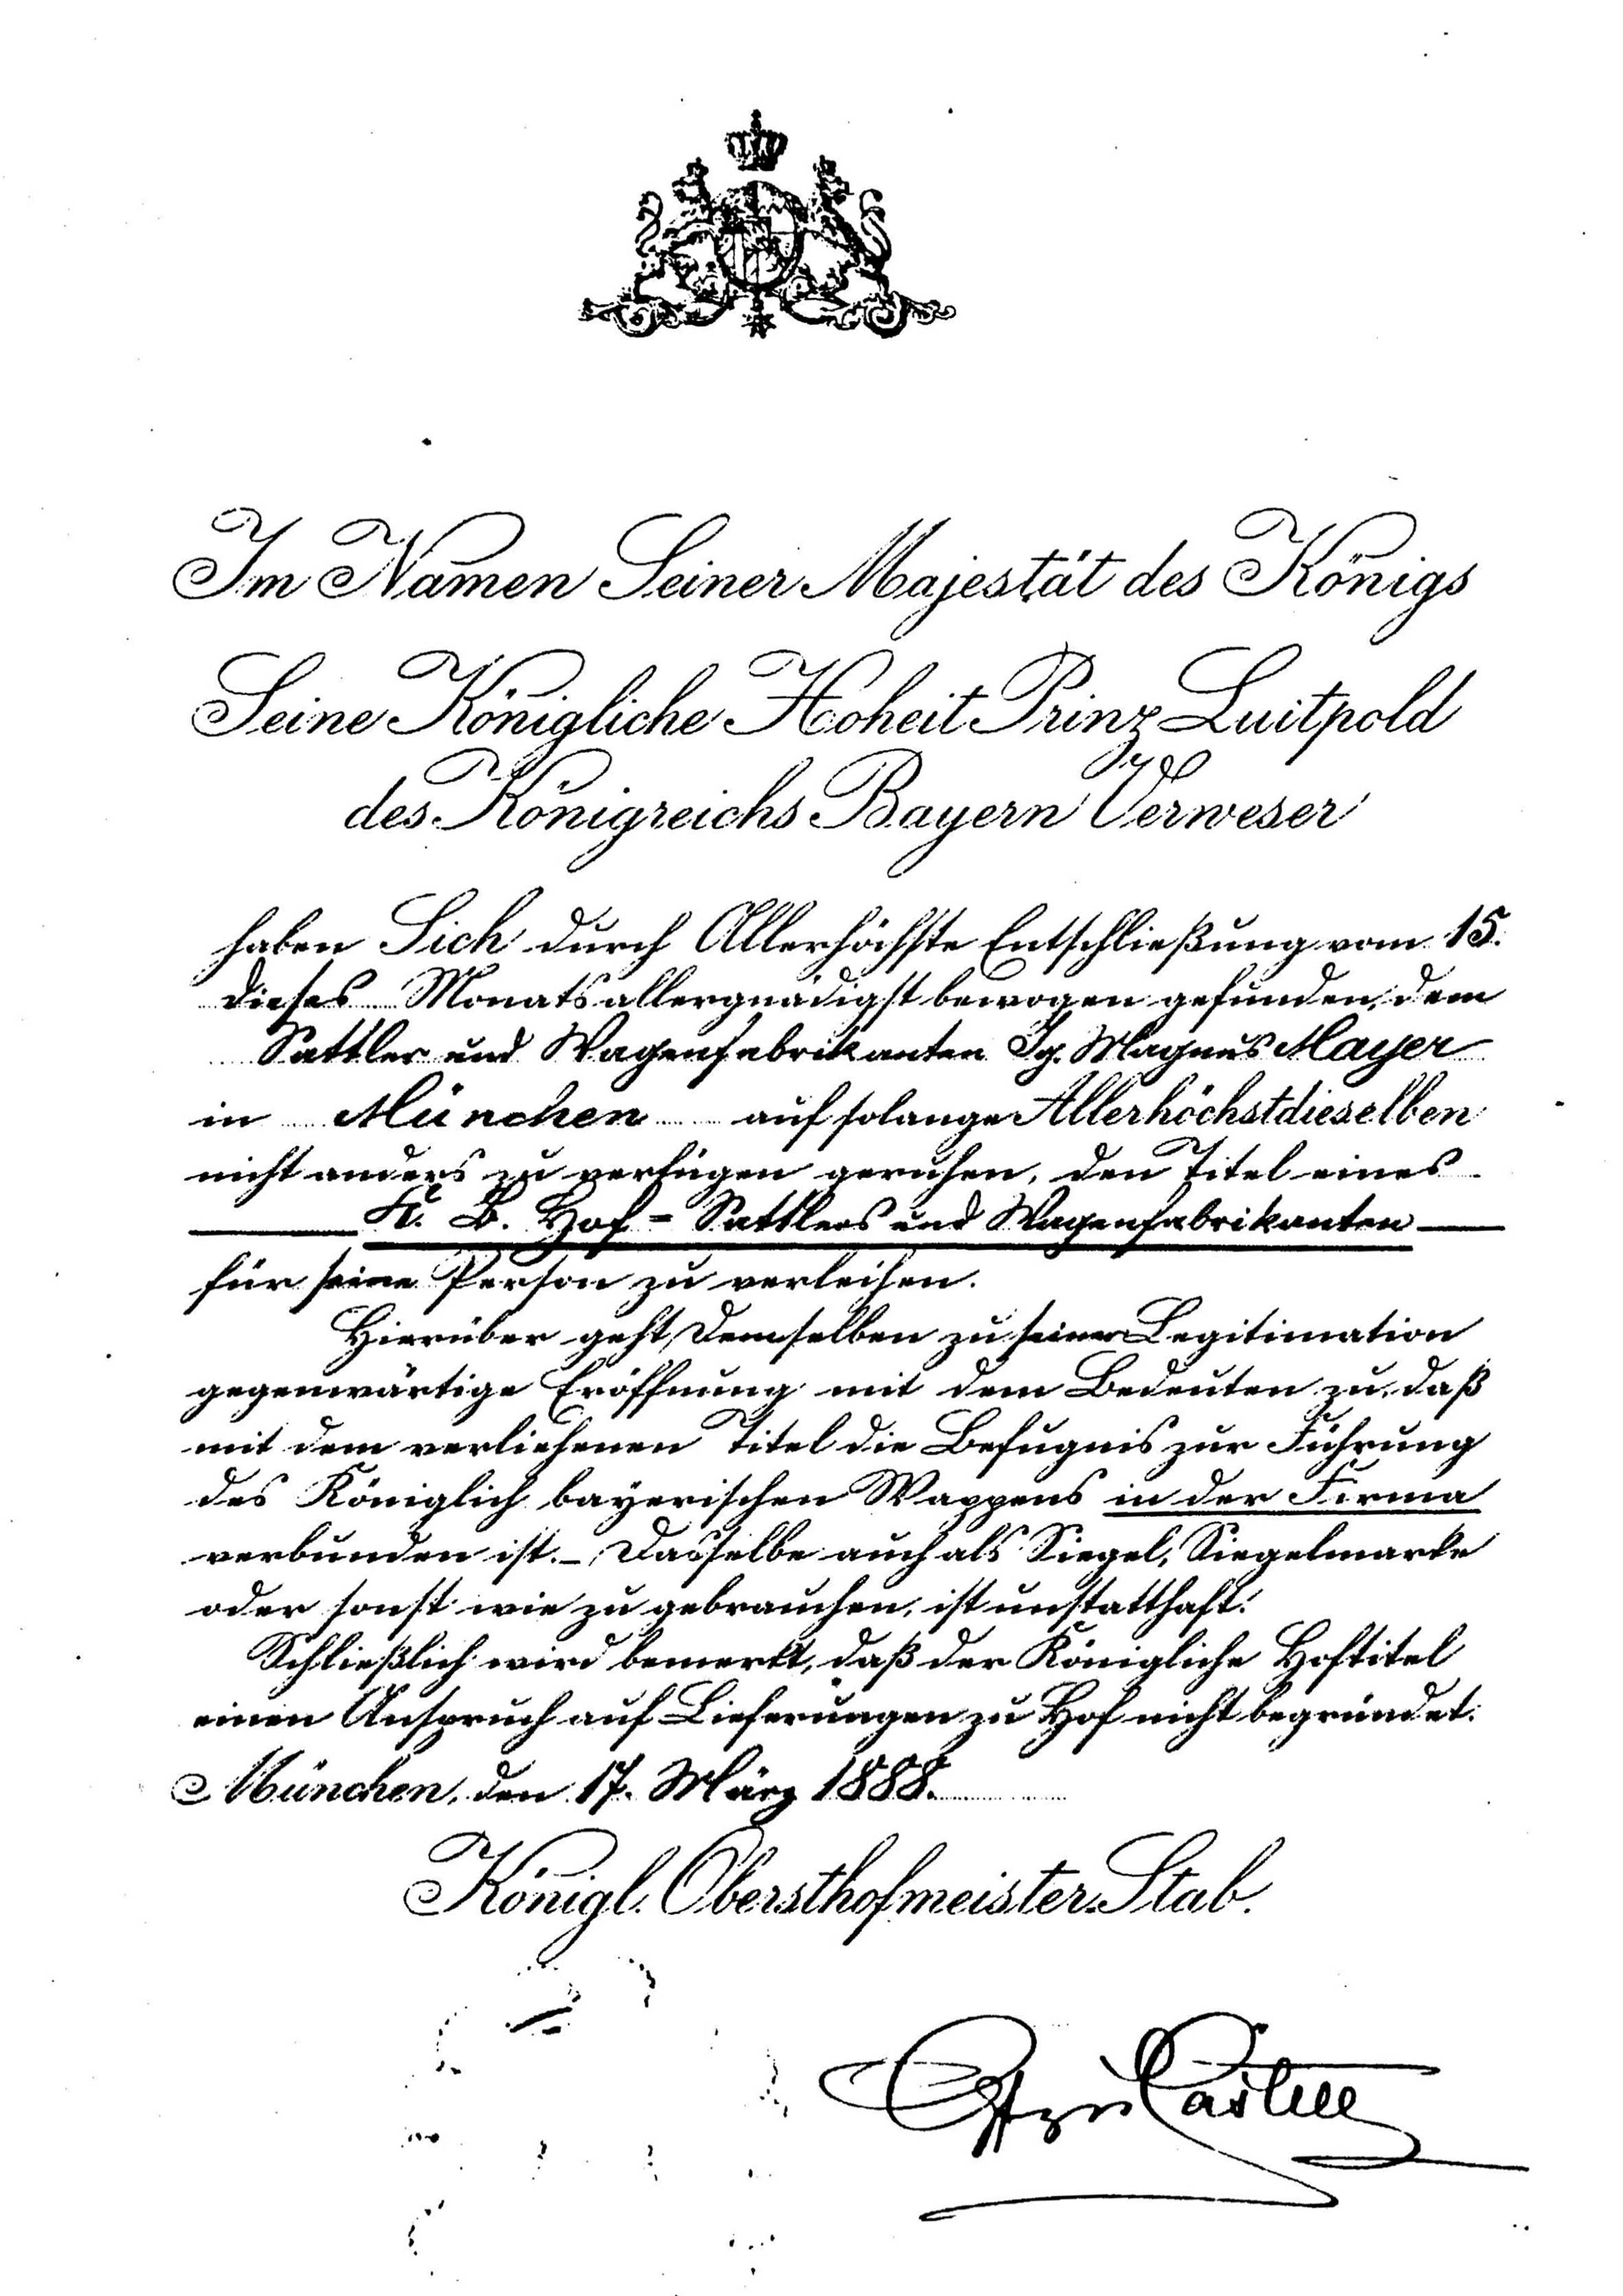 Im Namen Seiner Majestät des Königs
Seine Königliche Hoheit Prinz Luitpold
des Königreichs Bayern Verweser
haben Sich durch Allerhöchste Entschließung vom 15.
dieses Monats allergnädigst bewogen gefunden, dem
Sattler und Wagenfabrikanten Ig. Magnus Mayer
in München auf solange Allerhöchstdieselben
nicht anders zu verfügen geruhen, den Titel eines
K. B. Hof-Sattlers und Wagenfabrikanten
für seine Person zu verleihen.
Hierüber geht Demselben zu seiner Legitimation
gegenwärtige Eröffnung mit dem Bedeuten zu, daß
mit dem verliehenen Titel die Befugnis zur Führung
des Königlich bayerischen Wappens in der Firma
verbunden ist. – Dasselbe auch als Siegel, Siegelmarke
oder sonst wie zu gebrauchen, ist unstatthaft.
Schließlich wird bemerkt, daß der Königliche Hoftitel
einen Anspruch auf Lieferungen zu Hof nicht begründet.
München, den 17. März 1888.
Königl. Obersthofmeister-Stab.
Castell